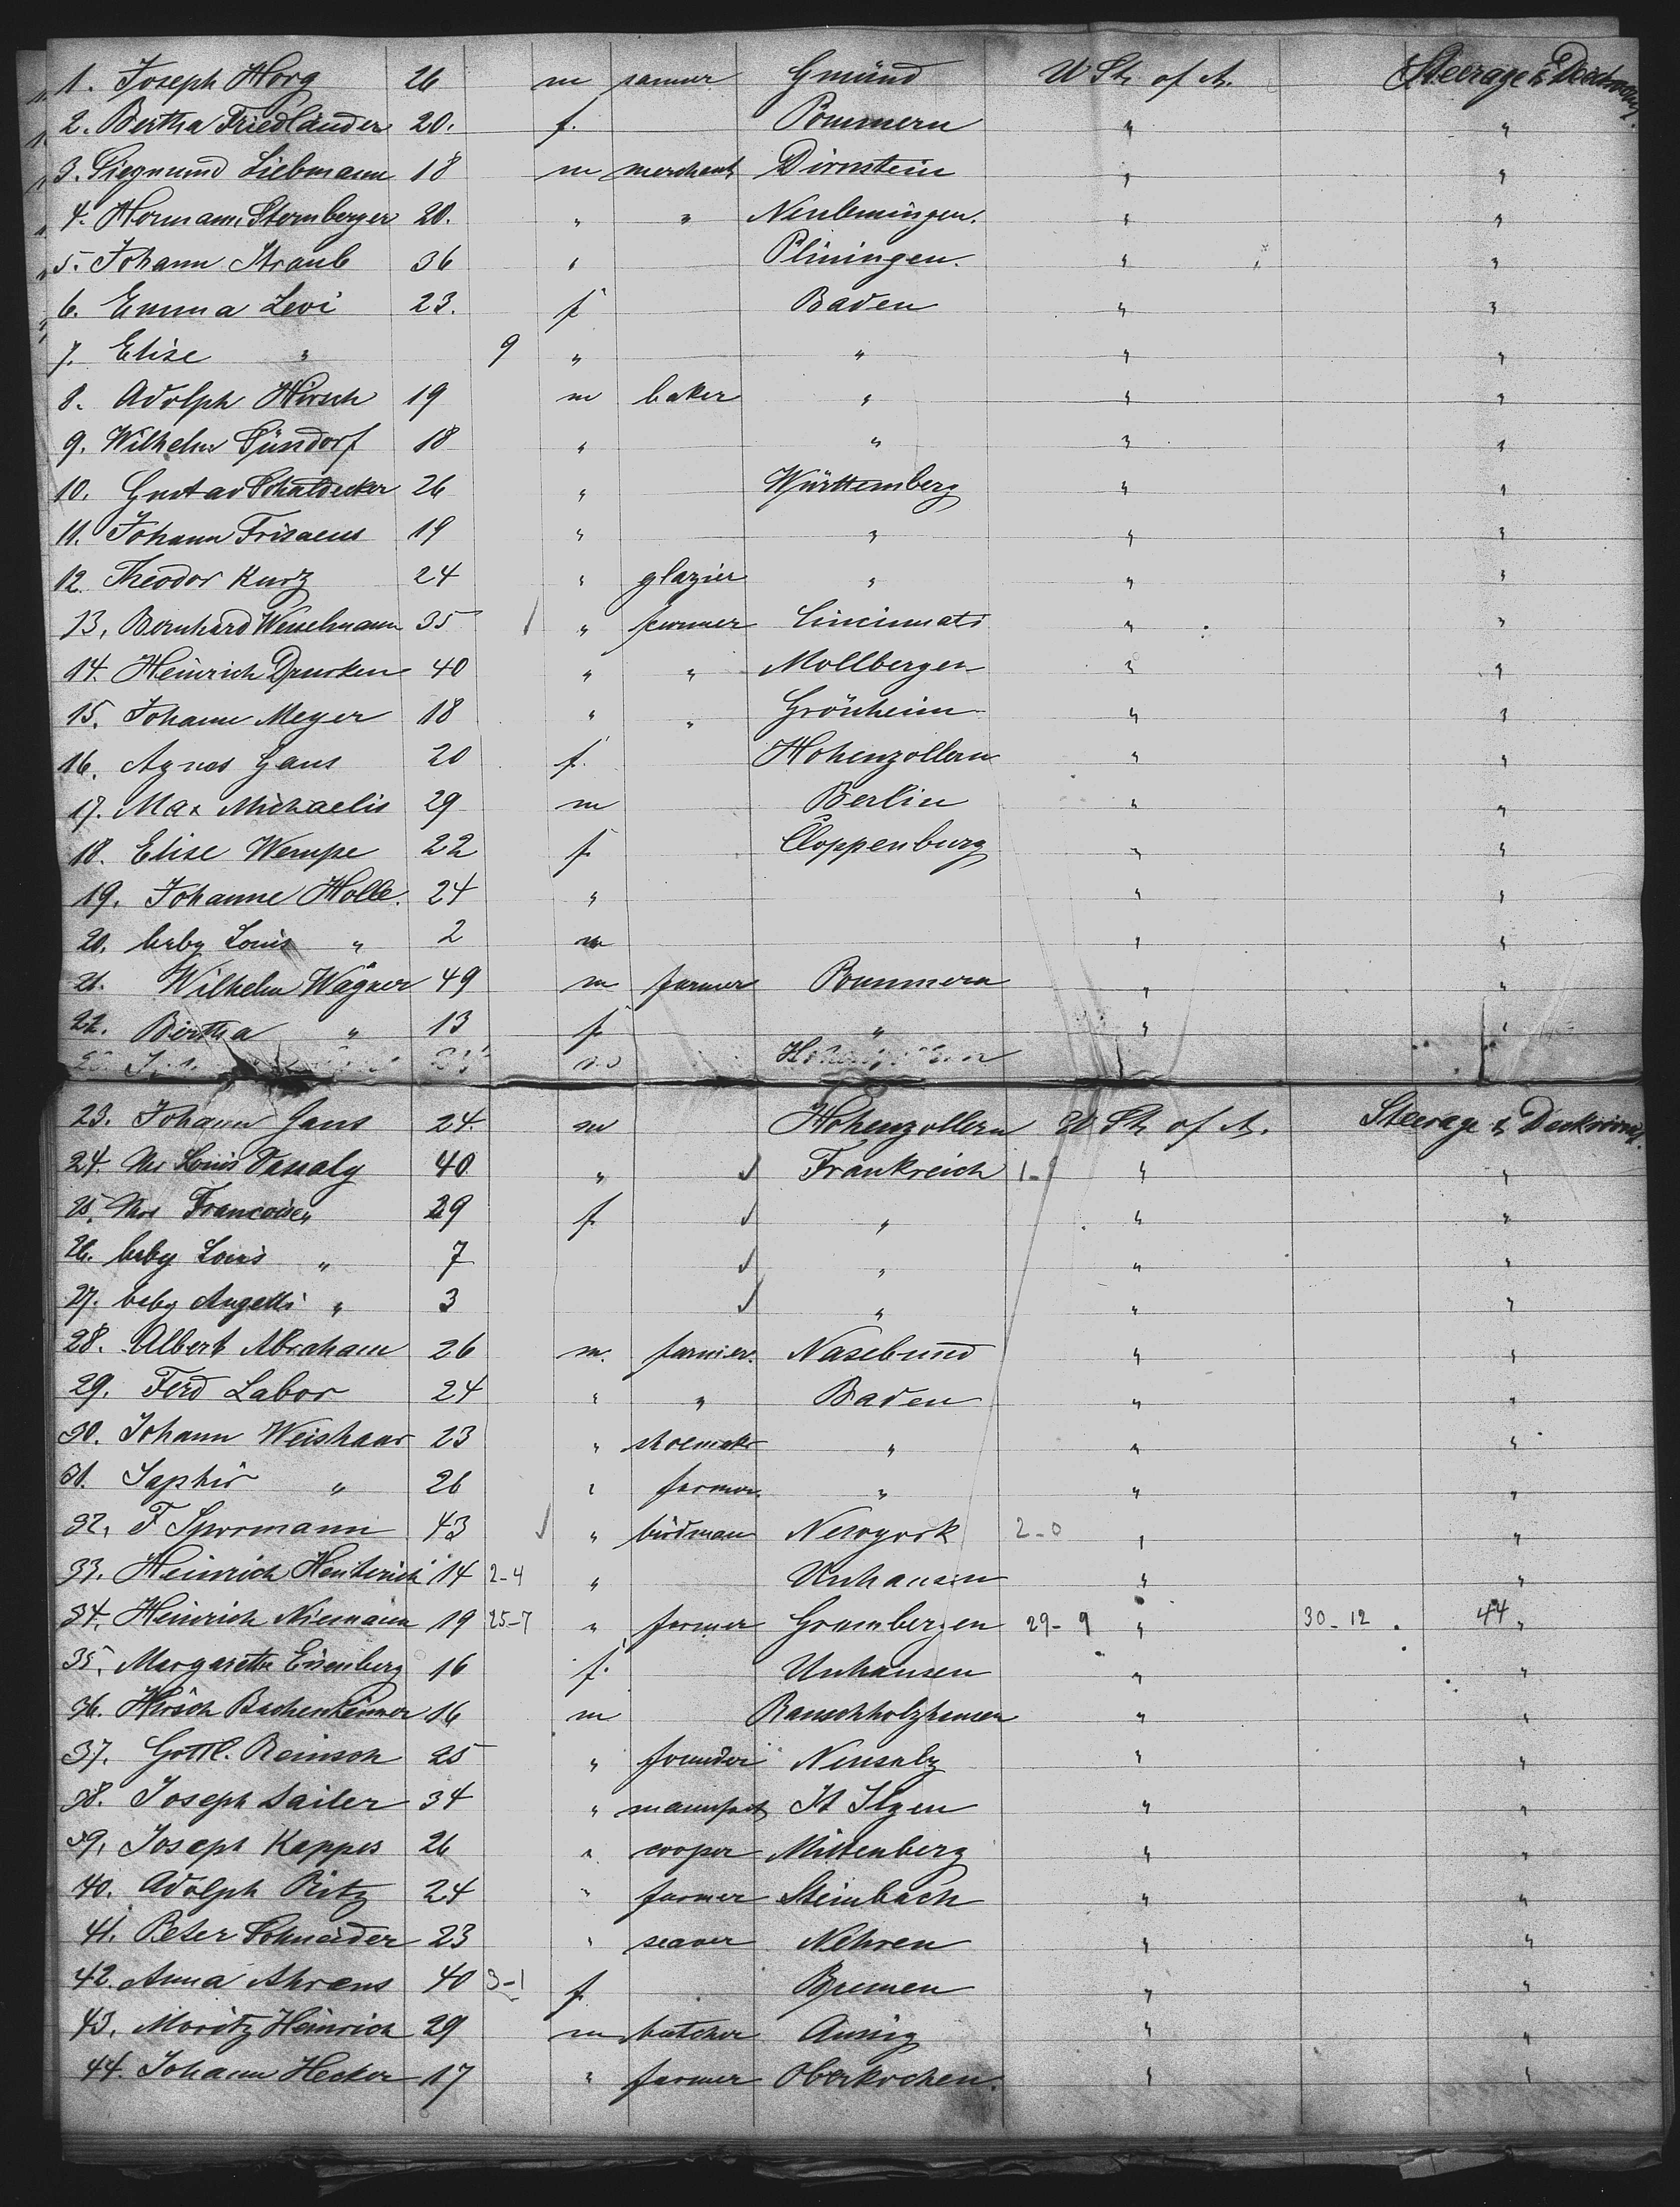 1. Joseph Horg 26 m farmer Gmünd U Sts of A. Steerage & Deckroom.
2. Bertha Friedländer 20. f. Pommern " "
3. Siegmund Liebmann 18 m merchant Dirmstein " "
4. Hermann Sternberger 20. " " Neuleiningen. " "
5. Johann Straub 36 " Pliningen. " "
6. Emma Levi 23. f Baden " "
7. Elise " 9 " " " "
8. Adolph Hirsch 19 m baker " " "
9. Wilhelm Sündorf 18 " " " "
10. Gustav Schaldecker 26 " Württemberg " "
11. Johann Frisaeus 19 " " " "
12. Theodor Kurz 24 " glazier " " "
13. Bernhard Wesselmann 35 " farmer Cincinnati " "
14. Heinrich Drucken 40 " " Mollbergen " "
15. Johann Meyer 18 " " Grönheim " "
16. Agnes Gans 20 f. Hohenzollern " "
17. Max Michaelis 29 m Berlin " "
18. Elise Wempe 22 f. Cloppenburg " "
19. Johanne Holle. 24 " " "
20. baby Louis " 2 m " "
21. Wilhelm Wagner 49 m farmer Pommern " "
22. Bertha " 13 f. " " "
23. Johann Gans 24. m Hohenzollern U Sts of A. Steerage & Deckroom.
24. Mr Louis Vassaly 40 " Frankreich " "
25. Mrs Francoise " 29 f. " " "
26. baby Louis " 7 " " "
27. baby Angelli " 3 " " "
28. Albert Abraham 26 m. farmer. Nasebund " "
29. Ferd Labor 24 " " Baden " "
30. Johann Weishaar 23 " shoemakr " " "
31. Saphir " 26 " farmer. " " "
32. F Spormann 43 " birdman Newyork 2-0 " "
33. Heinrich Henterich 14 2-4 " Unhausen " "
34. Heinrich Niemann 19 25-7 " farmer Grambergen 29-9 " 30-12 44 "
35. Margaretha Eisenberg 16 f. Unhausen " "
36. Hirsch Bachenheimer 16 m Rauschholzhausen " "
37. Gottl. Reinsch 25 " founder Neusalz " "
38. Joseph Sailer 34 " manufact St Ilgen " "
39. Joseph Kappes 26 " cooper Miltenberg " "
40. Adolph Ritz 24 " farmer Steinbach " "
41. Peter Schneider 23 " Nehren " "
42. Anna Ahrens 40 3-1 f. Bremen " "
43. Moritz Heinrich 29 m butcher Aussig " "
44. Johann Hecker 17 " farmer Oberkochen. " "